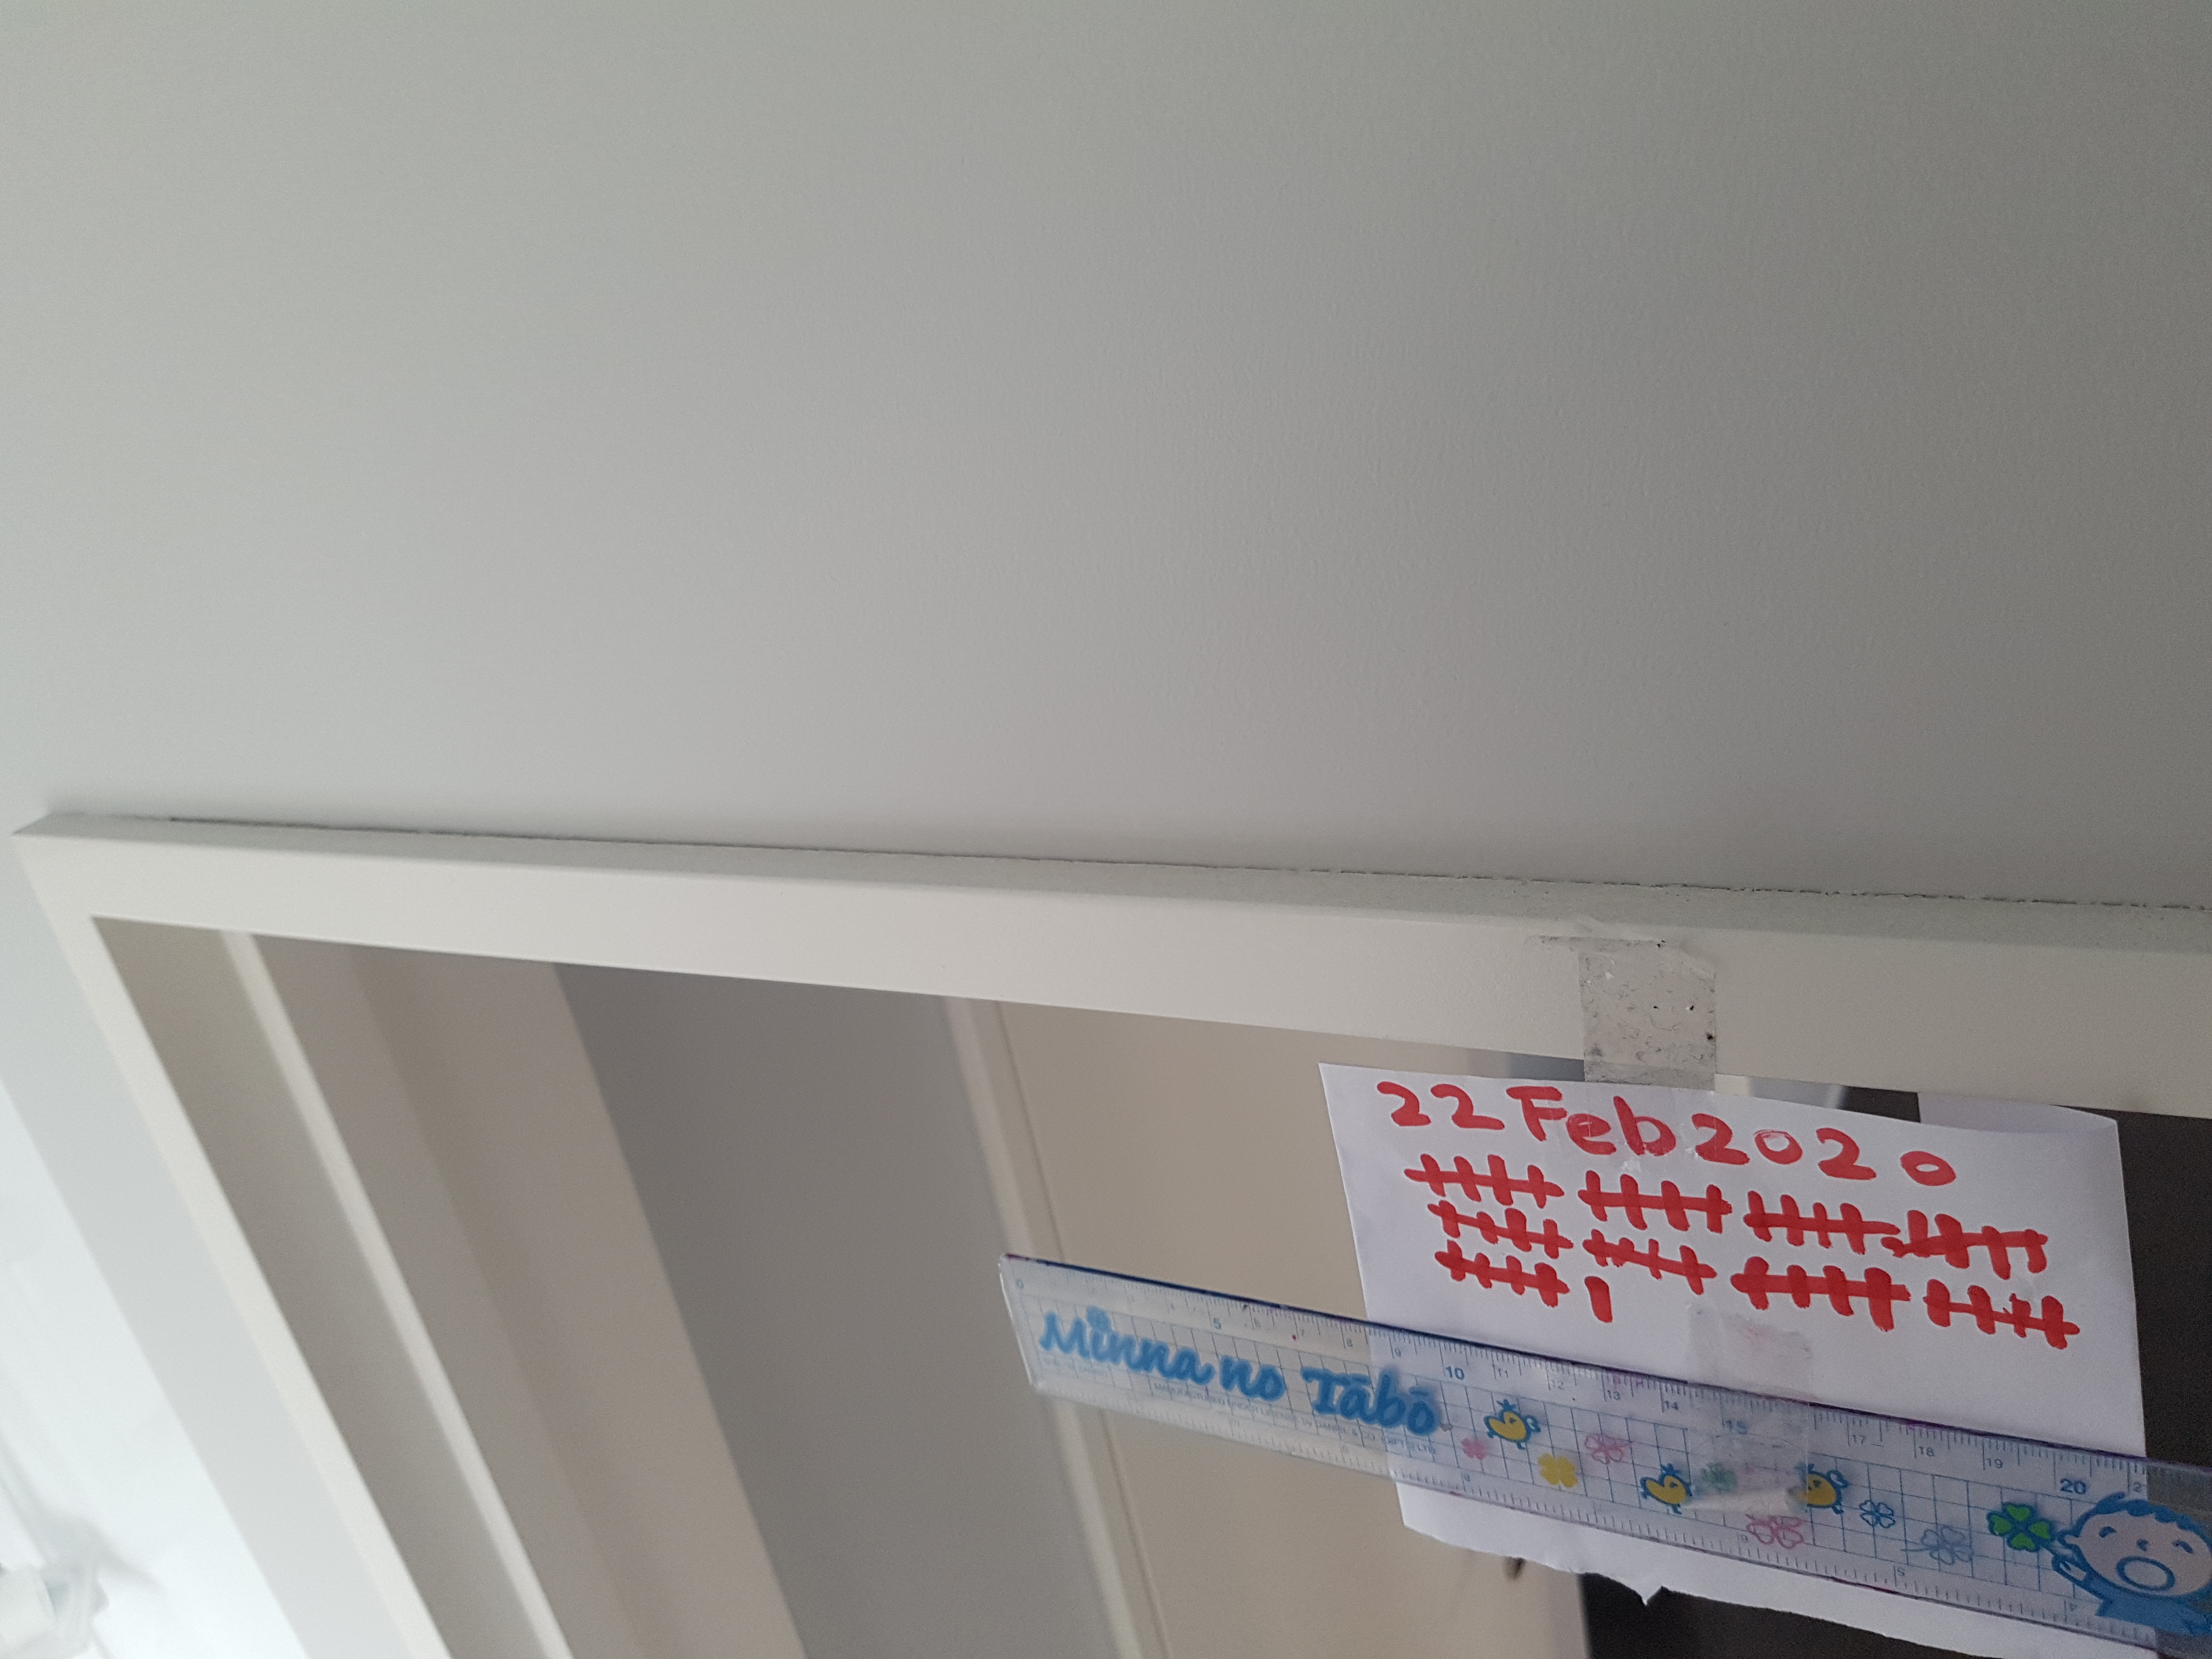 22 Feb 2020
Minna no Tābō
0 5 6 7 8 9 10 11 12 13 14 15 17 18 19 20